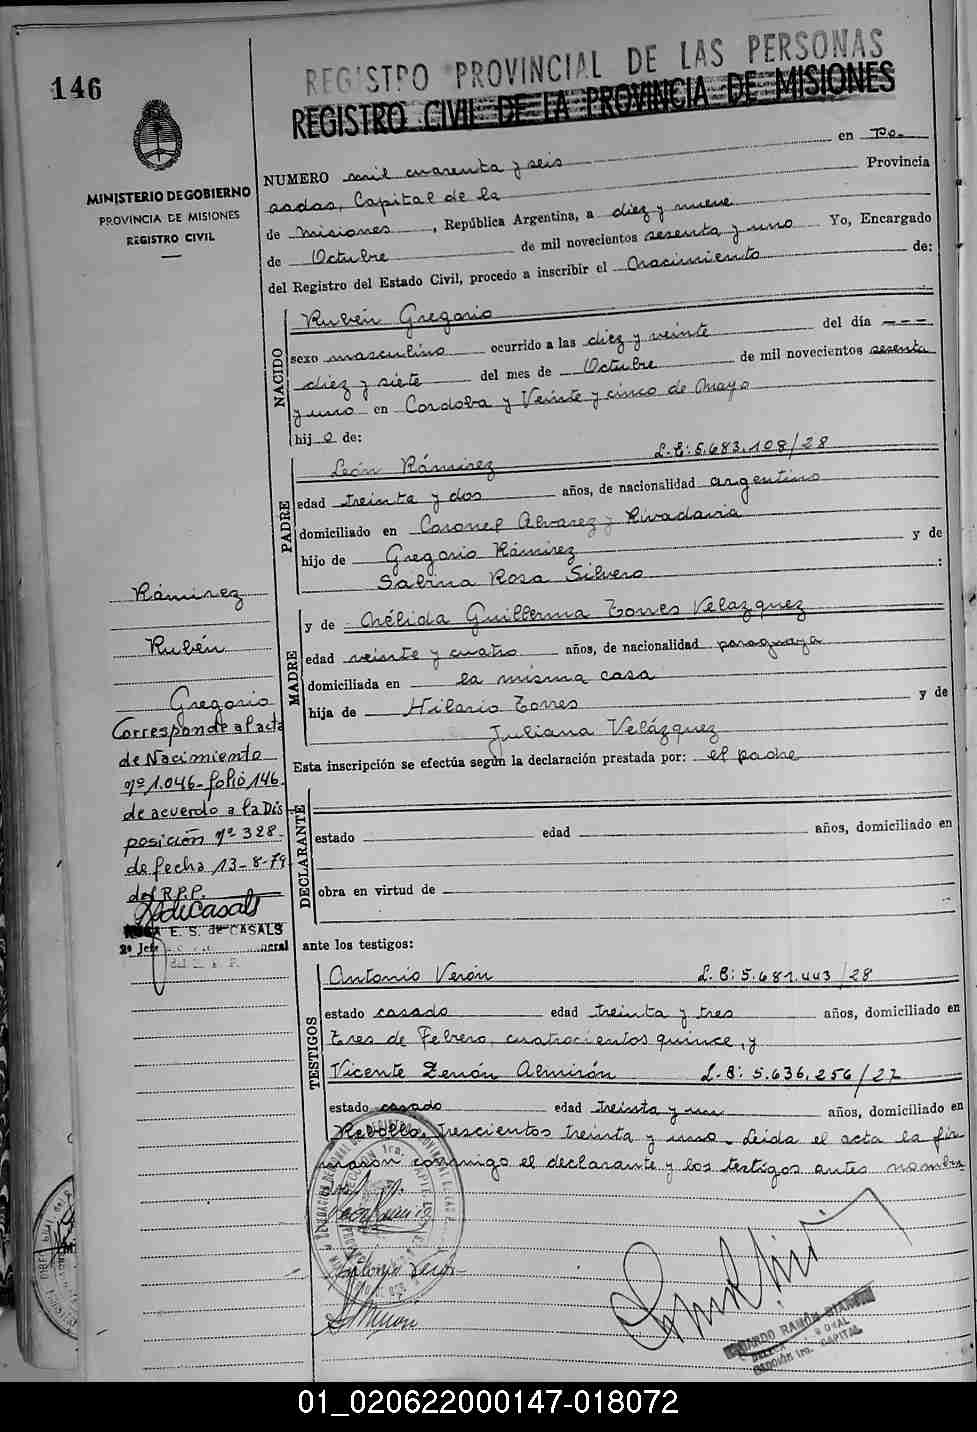 146
REGISTRO PROVINCIAL DE LAS PERSONAS
REGISTRO CIVIL DE LA PROVINCIA DE MISIONES
MINISTERIO DE GOBIERNO
PROVINCIA DE MISIONES
REGISTRO CIVIL
NUMERO mil cuarenta y seis en Po-
sadas, Capital de la Provincia
de Misiones, República Argentina, a diez y nueve
de Octubre de mil novecientos sesenta y uno Yo, Encargado
del Registro del Estado Civil, procedo a inscribir el Nacimiento de:
NACIDO
Rubén Gregorio
sexo masculino ocurrido a las diez y veinte del día ---
diez y siete del mes de Octubre de mil novecientos sesenta
y uno en Cordoba y Veinte y cinco de Mayo
hij o de:
PADRE
León Rámirez L.E: 5.683.108/28
edad treinta y dos años, de nacionalidad argentino
domiciliado en Coronel Alvarez y Rivadavia
hijo de Gregorio Rámirez y de
Sabina Rosa Silvero :
MADRE
y de Nélida Guillerma Torres Velazquez
edad veinte y cuatro años, de nacionalidad paraguaya
domiciliada en la misma casa
hija de Hilario Torres y de
Juliana Velázquez
Esta inscripción se efectúa según la declaración prestada por: el padre
DECLARANTE
estado edad años, domiciliado en
obra en virtud de
ante los testigos:
TESTIGOS
Antonio Verón L.E: 5.681.443/28
estado casado edad treinta y tres años, domiciliado en
Tres de Febrero, cuatrocientos quince, y
Vicente Zenón Almirón L.E: 5.636.256/27
estado casado edad treinta y un años, domiciliado en
Rebollo, trescientos treinta y uno. Leída el acta la fir
maron conmigo el declarante y los testigos antes nombra
Rámirez
Rubén
Gregorio
Corresponde al acta
de Nacimiento
nº 1.046- folio 146.
de acuerdo a la Dis
posición nº 328-
de fecha 13-8-79
del R.P.P.
ROSA E. S. de CASALS
2º Jefe
01_020622000147-018072